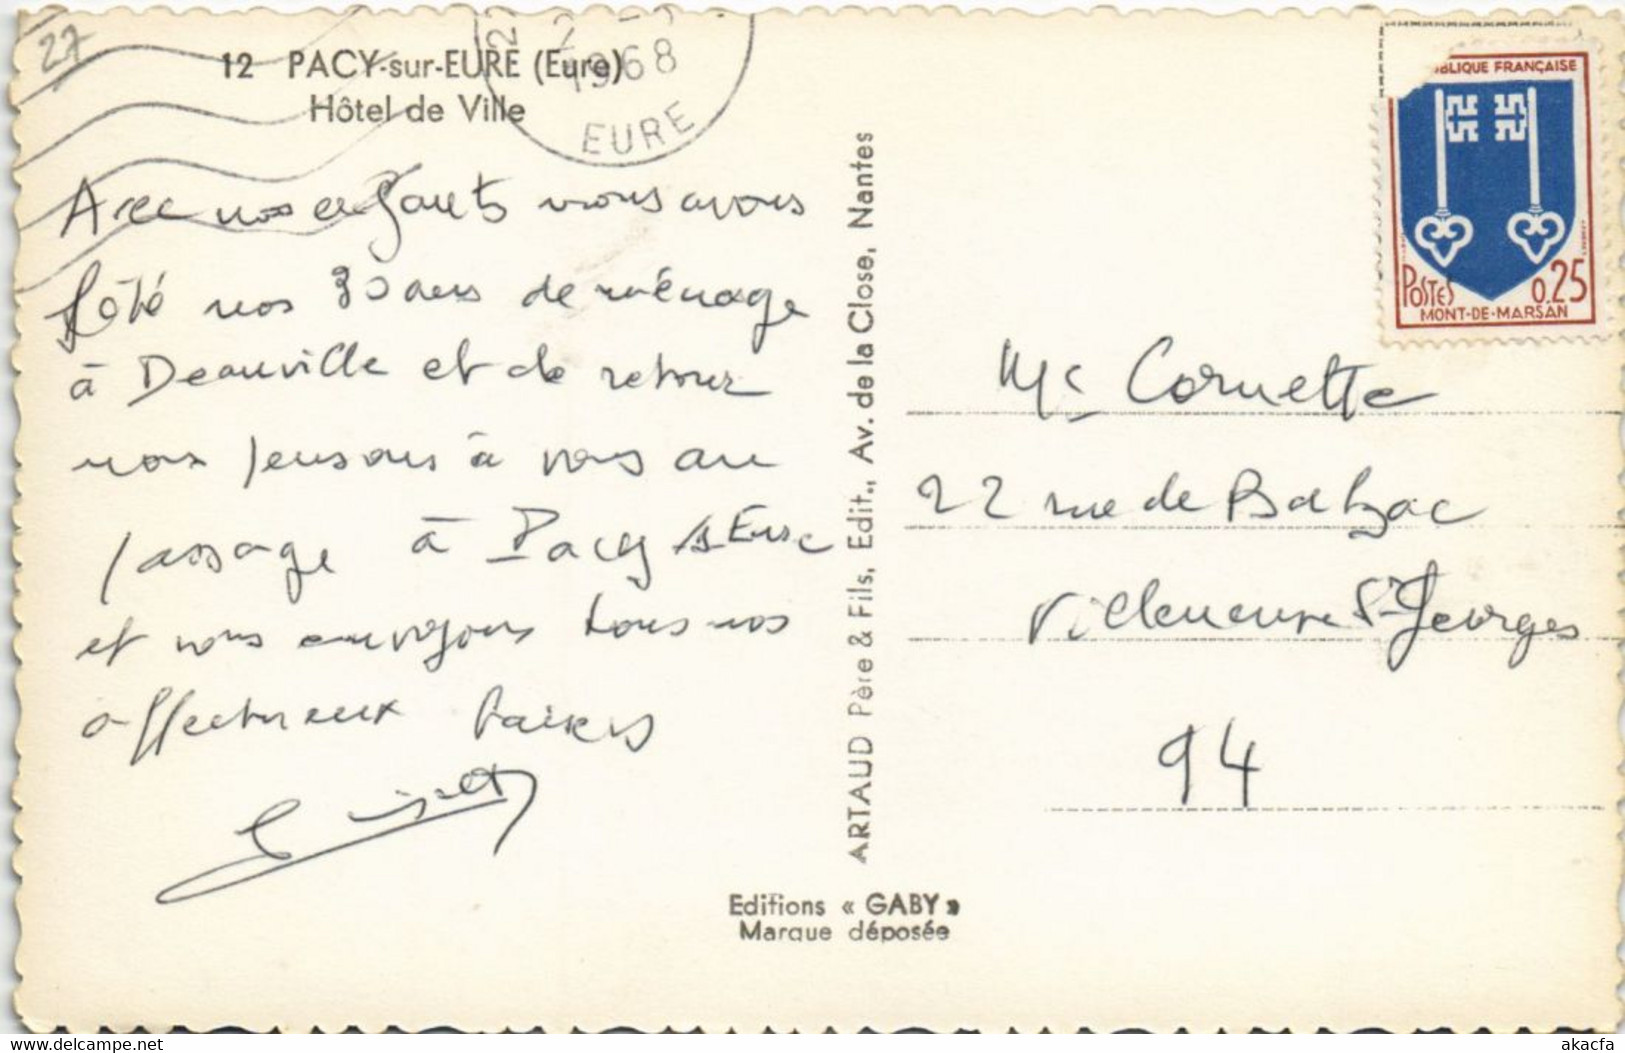 27
12 PACY-sur-EURE (Eure)
Hôtel de Ville
1968
EURE
Avec nos enfants nous avons
fêté nos 30 ans de ménage
à Deauville et de retour
nous pensons à vous au
passage à Pacy s/Eure
et vous envoyons tous nos
affectueux baisers
ARTAUD Père & Fils, Edit., Av. de la Close, Nantes
Editions « GABY »
Marque déposée
BLIQUE FRANÇAISE
POSTES 0.25
MONT-DE-MARSAN
Cornette
22 rue de Balzac
Villeneuve St Georges
94
www.delcampe.net
akacfa